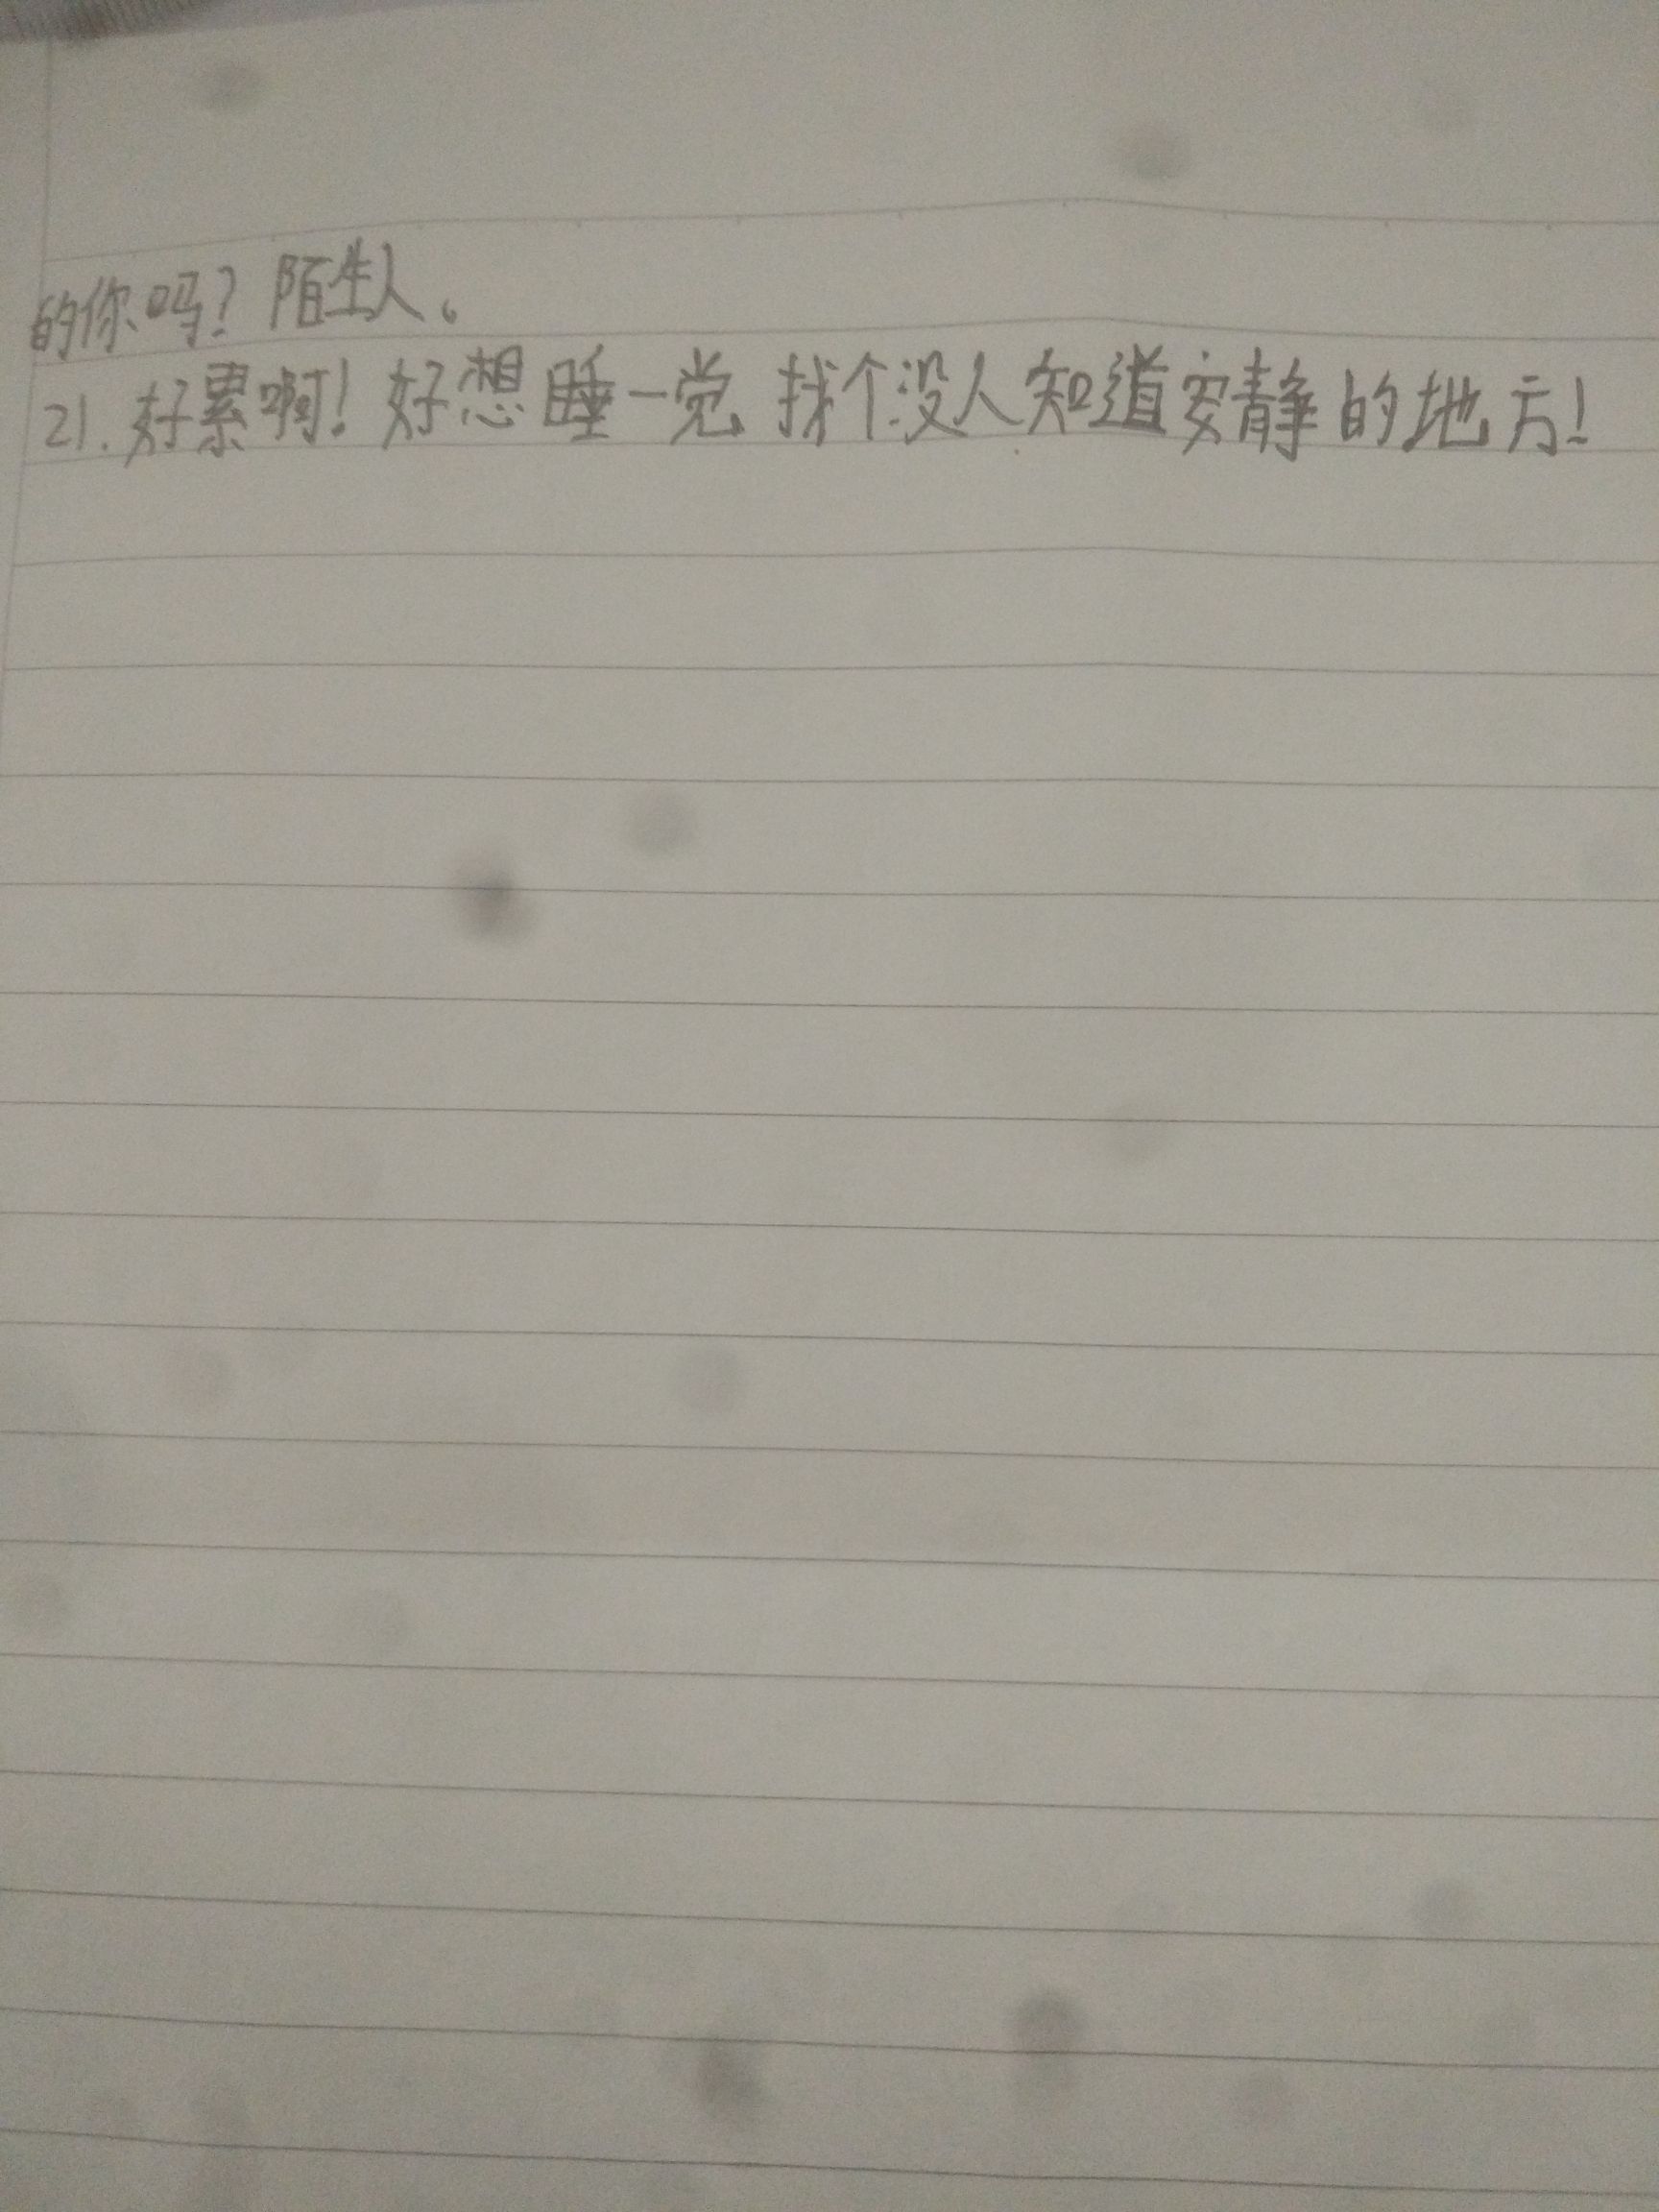 的你吗？陌生人。
21. 好累啊！好想睡一觉 找个没人知道安静的地方！